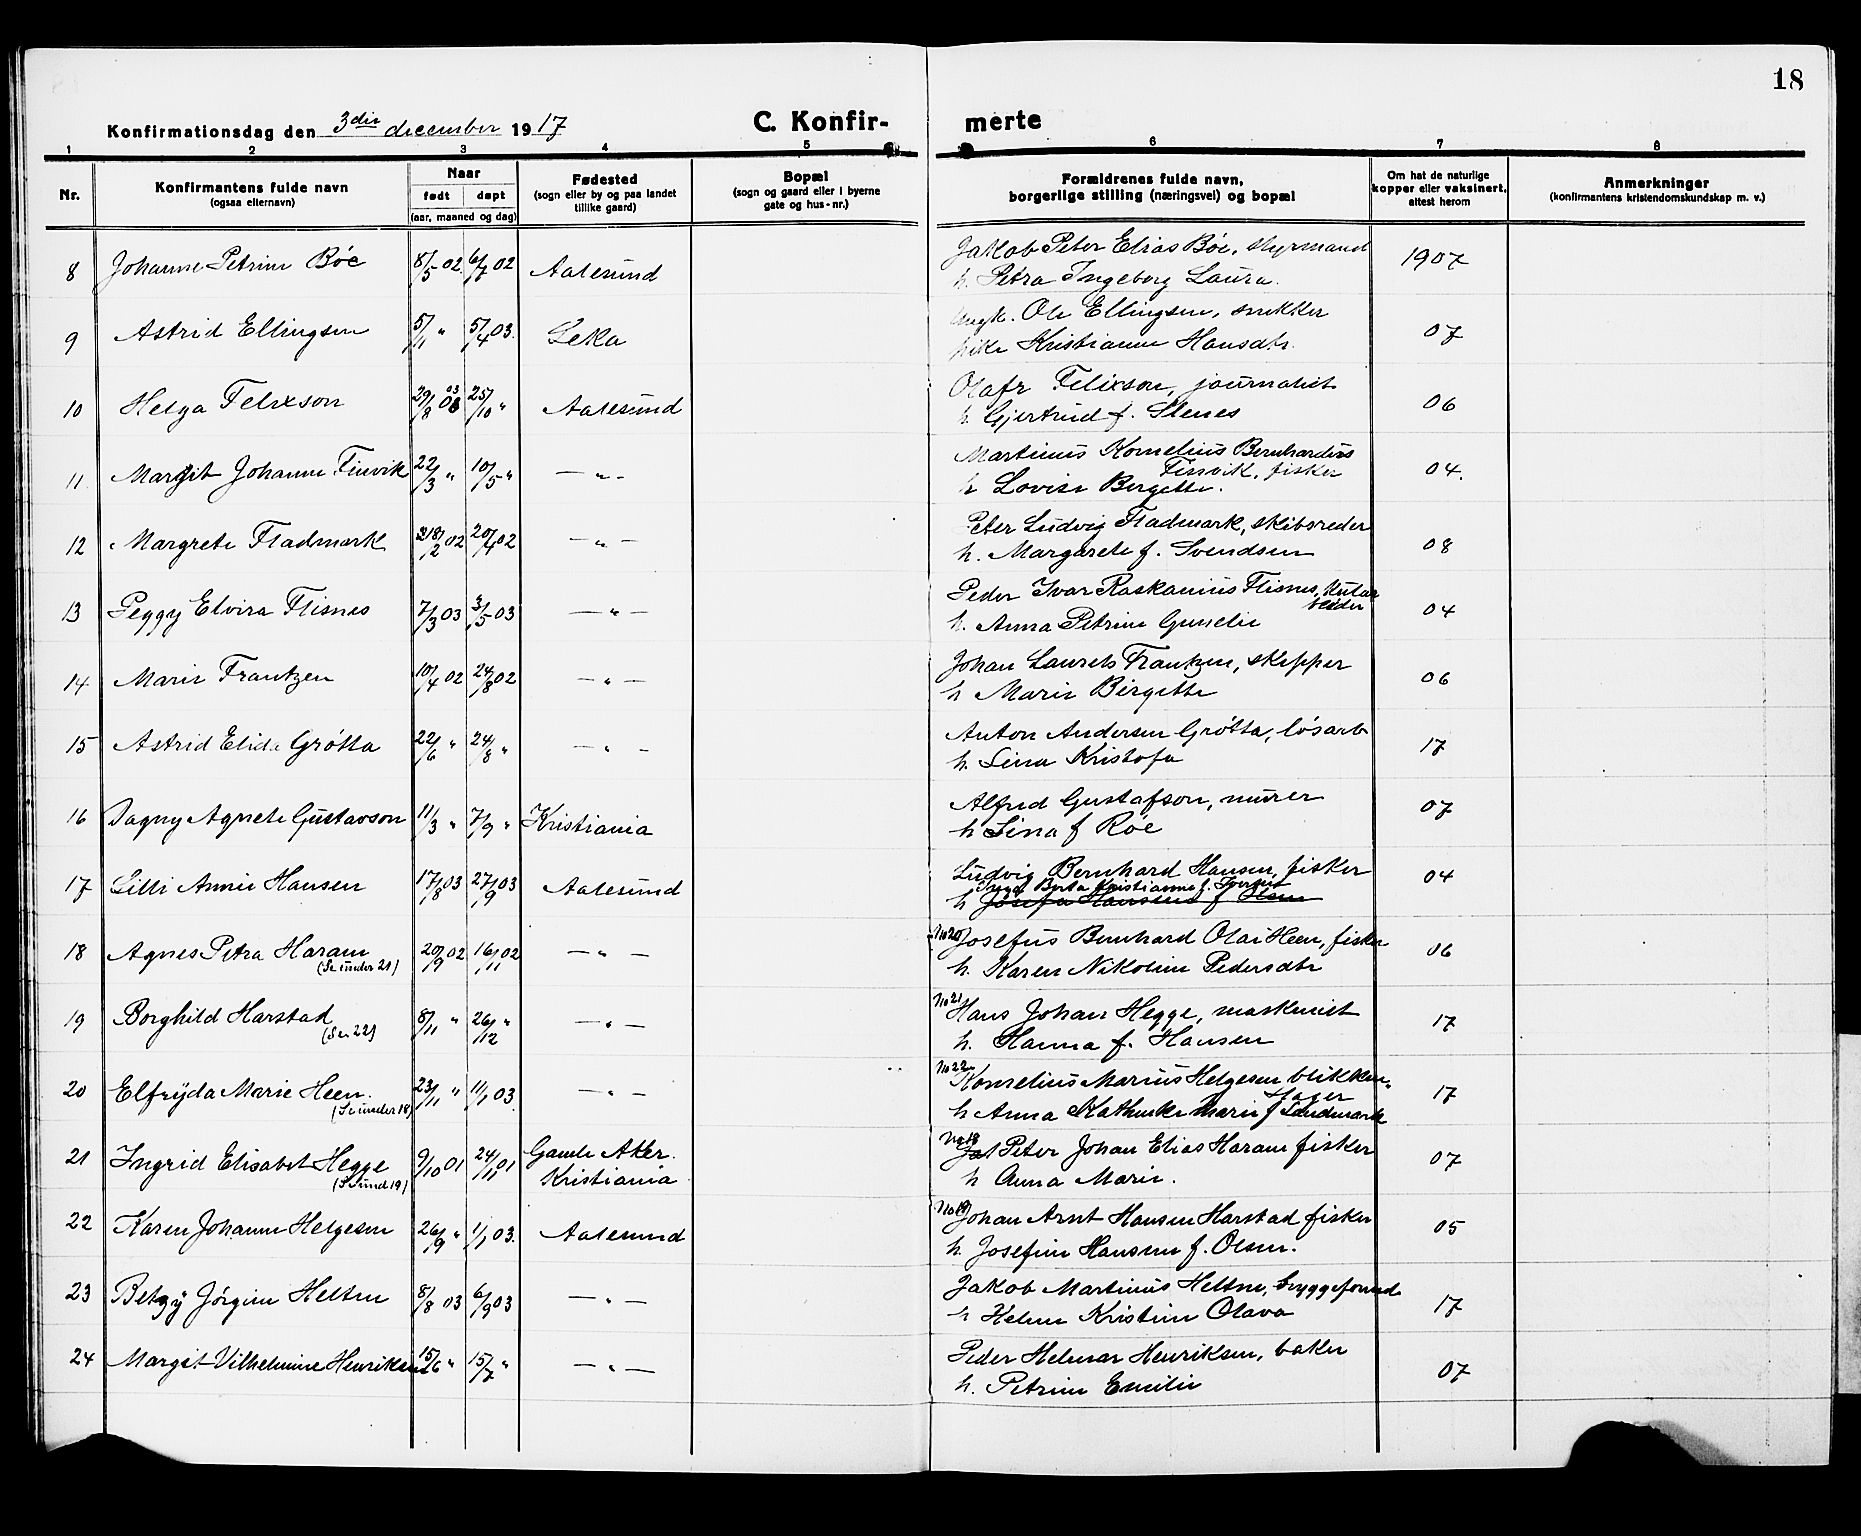 18
Konfirmationsdag den 3die december 1917
C. Konfir-
merte
1 2 3 4 5 6 7 8
Nr.
Konfirmantens fulde navn
(ogsaa elternavn)
Naar
født døpt
(aar, maaned og dag)
Fødested
(sogn eller by og paa landet
tillike gaard)
Bopæl
(sogn og gaard eller i byerne
gate og hus-nr.)
Forældrenes fulde navn,
borgerlige stilling (næringsvei) og bopæl
Om hat de naturlige
kopper eller vaksinert,
attest herom
Anmerkninger
(konfirmantens kristendomskundskap m. v.)
8 Johanne Petrine Bøe 8/5 02 6/7 02 Aalesund
Jakob Peter Elias Bøe, styrmand 1907
h. Petra Ingeborg Laura.
9 Astrid Ellingsen 5/1 " 5/4 03. Leka
Ungk. Ole Ellingsen, snekker 07
pike Kristianne Hansdtr.
10 Helga Felixson 29/8 03 25/10 " Aalesund
Olafr Felixson, journalist 06
h. Gjertrud f. Stenes
11 Margit Johanne Finvik 22/3 " 10/5 " — " -
Martinus Kornelius Bernhardus
Finsvik, fisker 04.
h Lovise Bergitte.
12 Margrete Fladmark 18/2 02 20/4 02 — " —
Peter Ludvig Fladmark, skibsreder 08
h. Margarete f. Svendsen
13 Peggy Elvira Flisnes 7/3 03 3/5 03 — " —
Peder Ivar Raskanius Flisnes,
04
h. Anna Petrine Gunelie
14 Marie Frantzen 10/4 02 24/8 02 — " —
Johan Laurets Frantzen, skipper 06
h Marie Birgitte
15 Astrid Elida Grøtta 22/6 " 24/8 " — " —
Anton Andersen Grøtta, løsarb 17
h. Lina Kristofa
16 Dagny Agnete Gustavson 11/3 " 7/9 " Kristiania
Alfred Gustafson, murer 07
h Lina f Røe
17 Lilli Annie Hansen 17/8 03 27/9 03 Aalesund
Ludvig Bernhard Hansen, fisker 04
Berta Kristianne f.
h Josefa Hansens f Olsen
18 Agnes Petra Haram 20/9 02 16/11 02 — " —
(Se under 21)
No 20 Josefus Bernhard Olai Heen, fisker 06
h. Karen Nikoline Pedersdtr
19 Borghild Harstad 8/11 " 26/12 " — " —
(Se 22)
No 21 Hans Johan Hegge, maskinist 17
h. Hanna f. Hansen
20 Elfryda Marie Heen. 23/11 " 11/1 03 — " —
(Se under 18)
No 22 Kornelius Marius Helgesen blikken-
slager 17
h Anna Kathinka Marie f Landmark
21 Ingrid Elisabet Hegge 9/10 01 24/11 01 Gamle Aker.
(Se und 19) Kristiania
No 18 Peter Johan Elias Haram fisker 07
h Anna Marie.
22 Karen Johanne Helgesen 26/9 " 1/1 03. Aalesund
No 19 Johan Arnt Hansen Harstad fisker 05
h. Josefine Hansen f. Olsen.
23 Betzy Jørgine Heltne 8/8 03 6/9 03 — " —
Jakob Martinus Heltne, bryggeformd 17
h Helene Kristine Olava
24 Margit Vilhelmine Henriksen 15/6 " 15/7 " — " —
Peder Helmar Henriksen, baker 07
h. Petrine Emilie